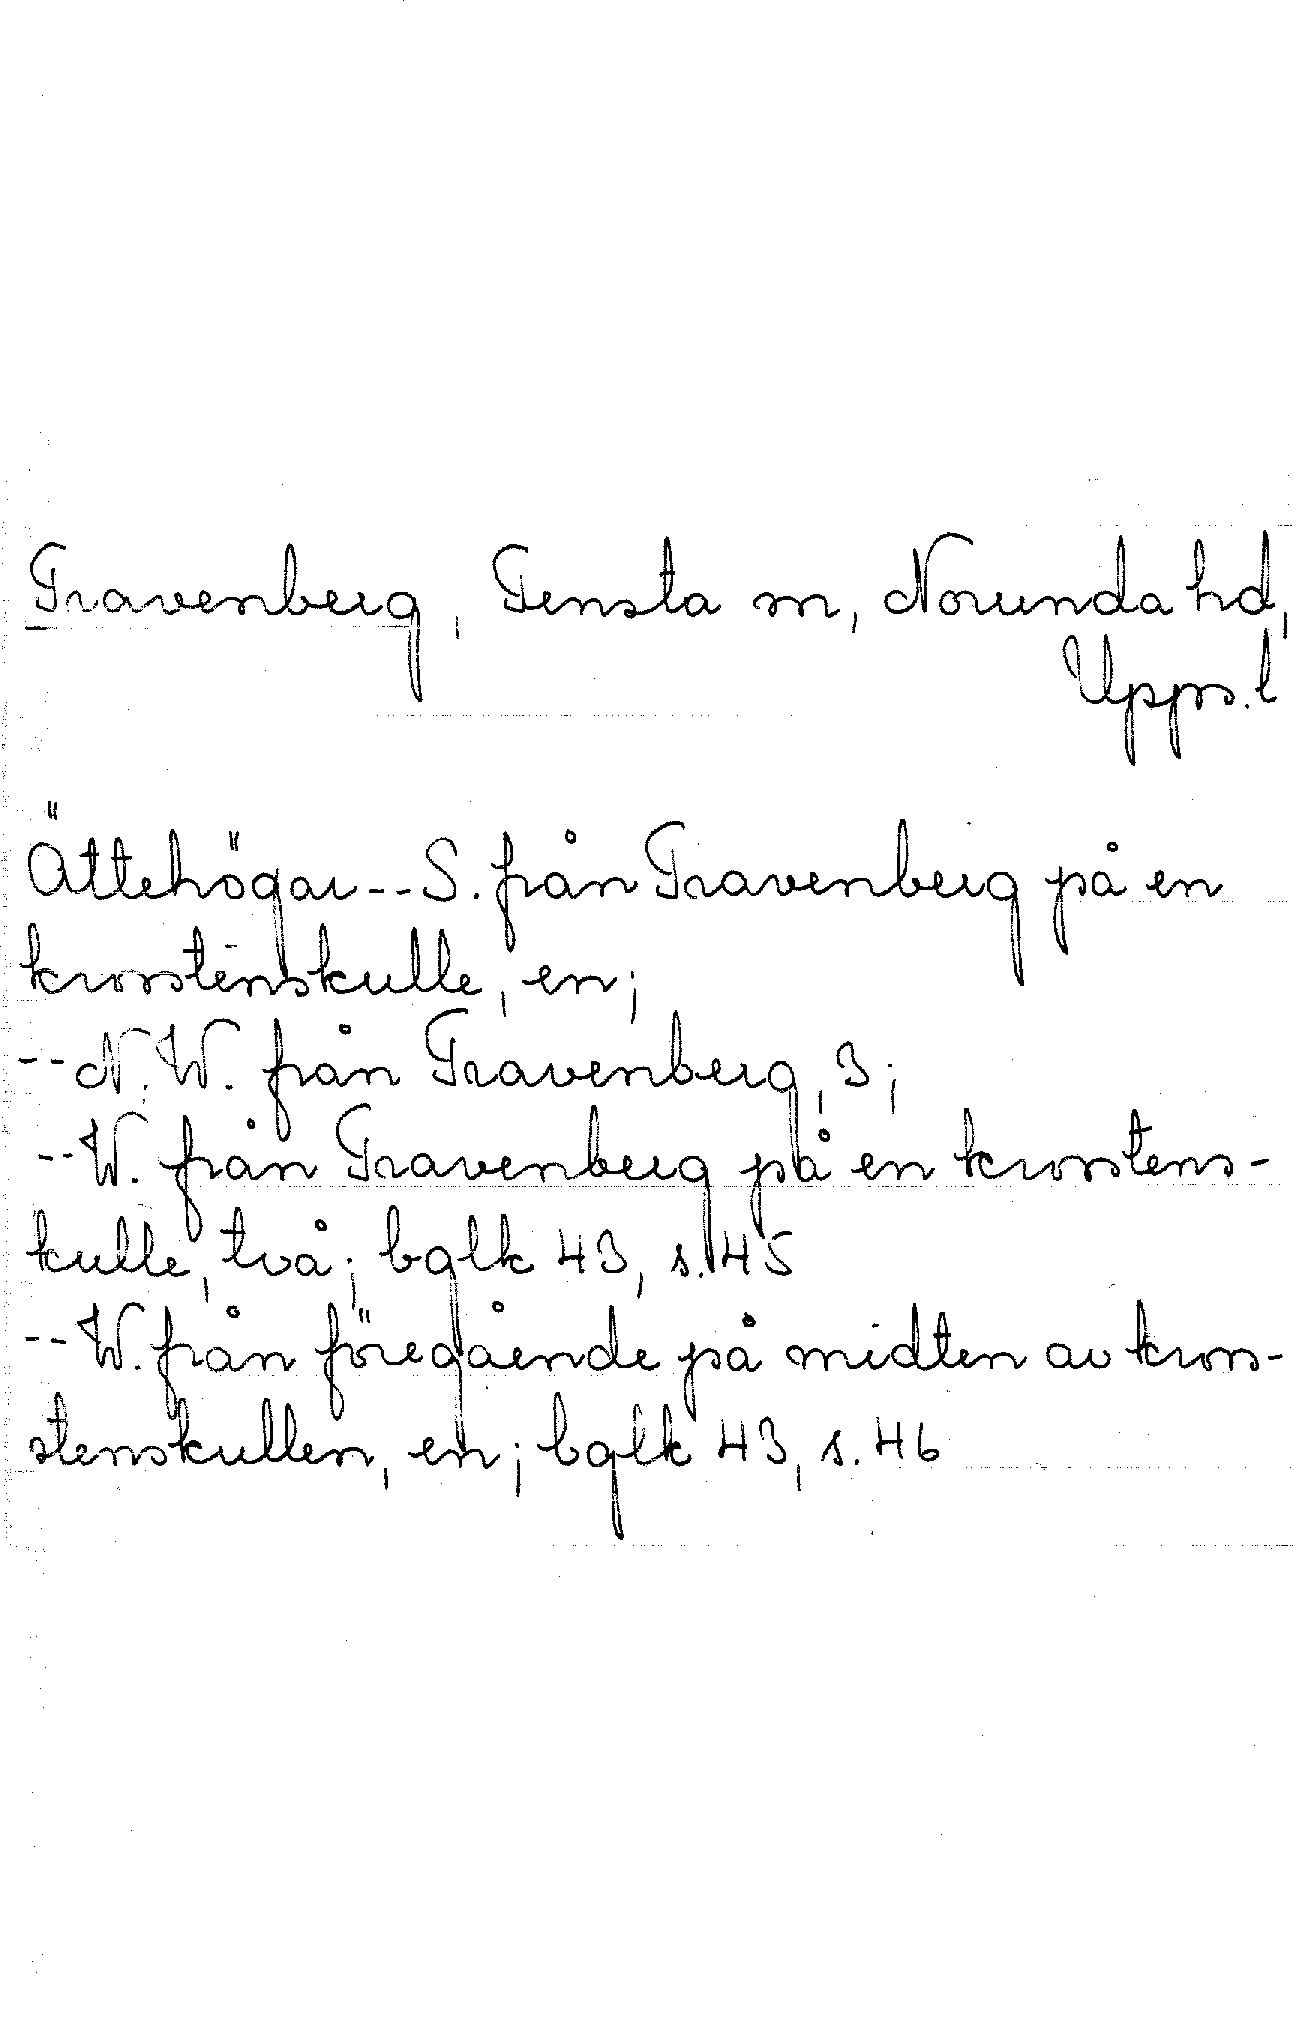 Travenberg, Tensta sn, Norunda hd,
Upps. l
Ättehögar--S. från Travenberg på en
krosstenskulle, en;
--N.W. från Travenberg, 3;
--W. från Travenberg på en krosstens-
kulle, två; bglk 43, s. 45
--W. från föregående på midten av kros-
stenskullen, en; bglk 43, s. 46